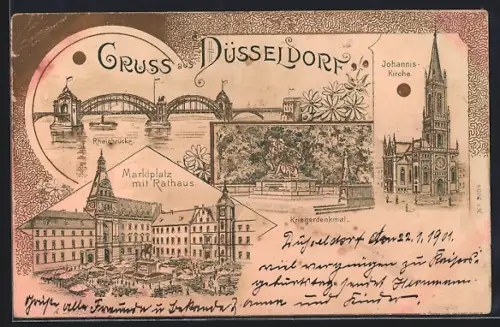 GRUSS aus DÜSSELDORF
Johannis-
Kirche
Rheinbrücke
Marktplatz
mit Rathaus.
Kriegerdenkmal.
Düsseldorf den 22.1.1901.
viel vergnügen zu Kaisers
geburtstag sendet Hermann
Anna und Kinder
Grüße alle Freunde u bekande